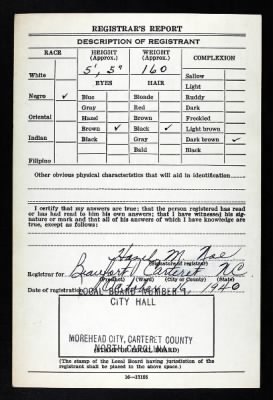 REGISTRAR'S REPORT
DESCRIPTION OF REGISTRANT
RACE HEIGHT (Approx.) WEIGHT (Approx.) COMPLEXION
5', 5" 160
White Sallow
EYES HAIR Light
Negro ✓ Blue Blonde Ruddy
Gray Red Dark
Oriental Hazel Brown Freckled
Brown ✓ Black ✓ Light brown
Indian Black Gray Dark brown ✓
Bald Black
Filipino
Other obvious physical characteristics that will aid in identification
I certify that my answers are true; that the person registered has read
or has had read to him his own answers; that I have witnessed his sig-
nature or mark and that all of his answers of which I have knowledge are
true, except as follows:
Hazel M.
(Signature of registrar)
Registrar for Beaufort Carteret N.C.
(Precinct) (Ward) (City or County) (State)
Date of registration October 16 1940
LOCAL BOARD NUMBER
CITY HALL
MOREHEAD CITY, CARTERET COUNTY
NORTH CAROLINA
(STAMP OF LOCAL BOARD)
(The stamp of the Local Board having jurisdiction of the
registrant shall be placed in the above space.)